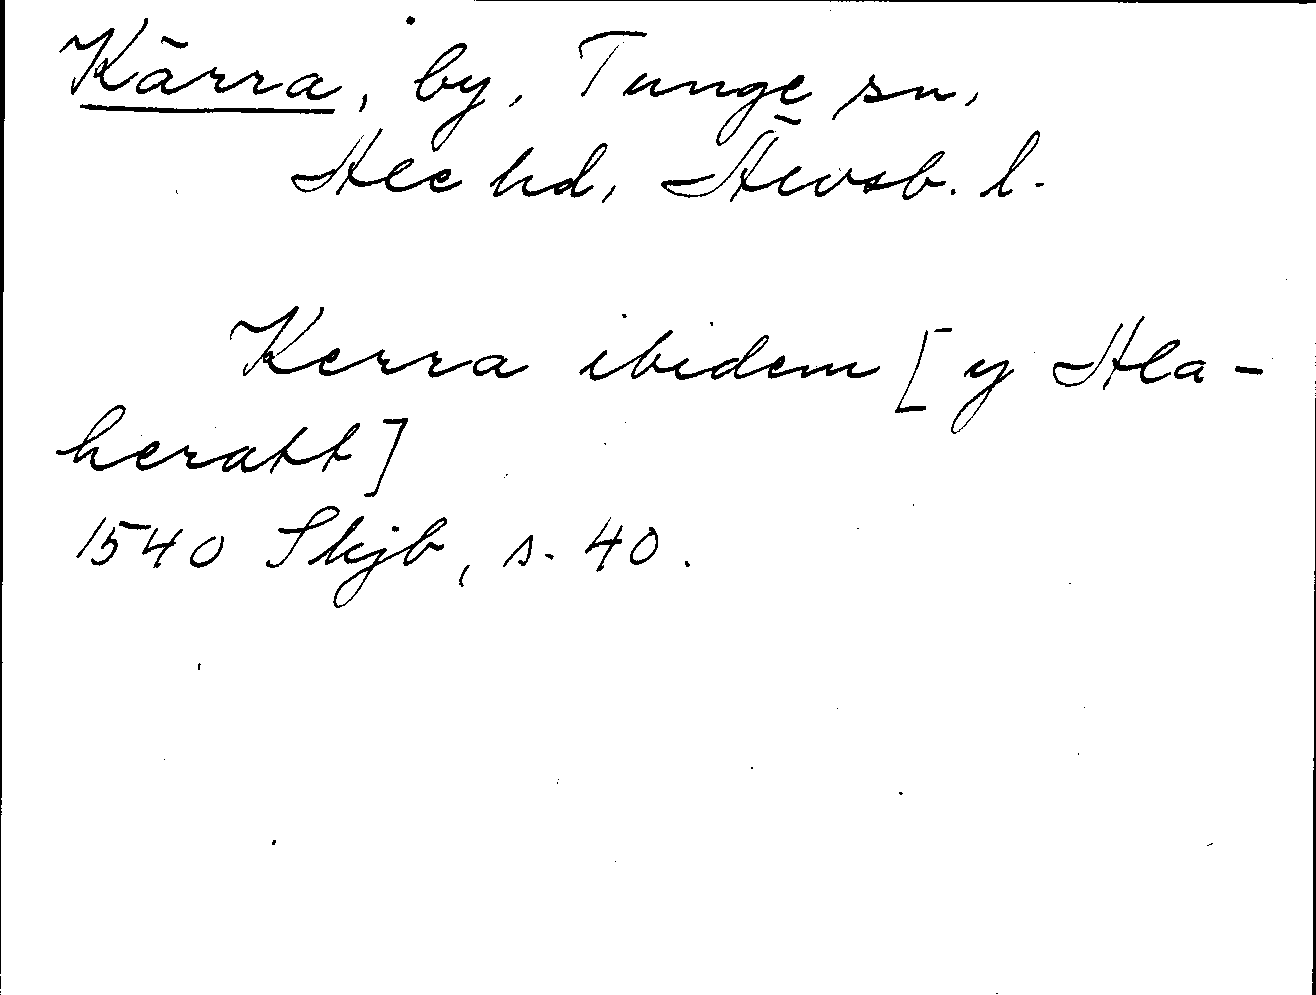 Kärra, by, Tunge sn,
Ale hd, Älvsb. l.
Kerra ibidem [y Ala-
heratt]
1540 Skjb, s. 40.